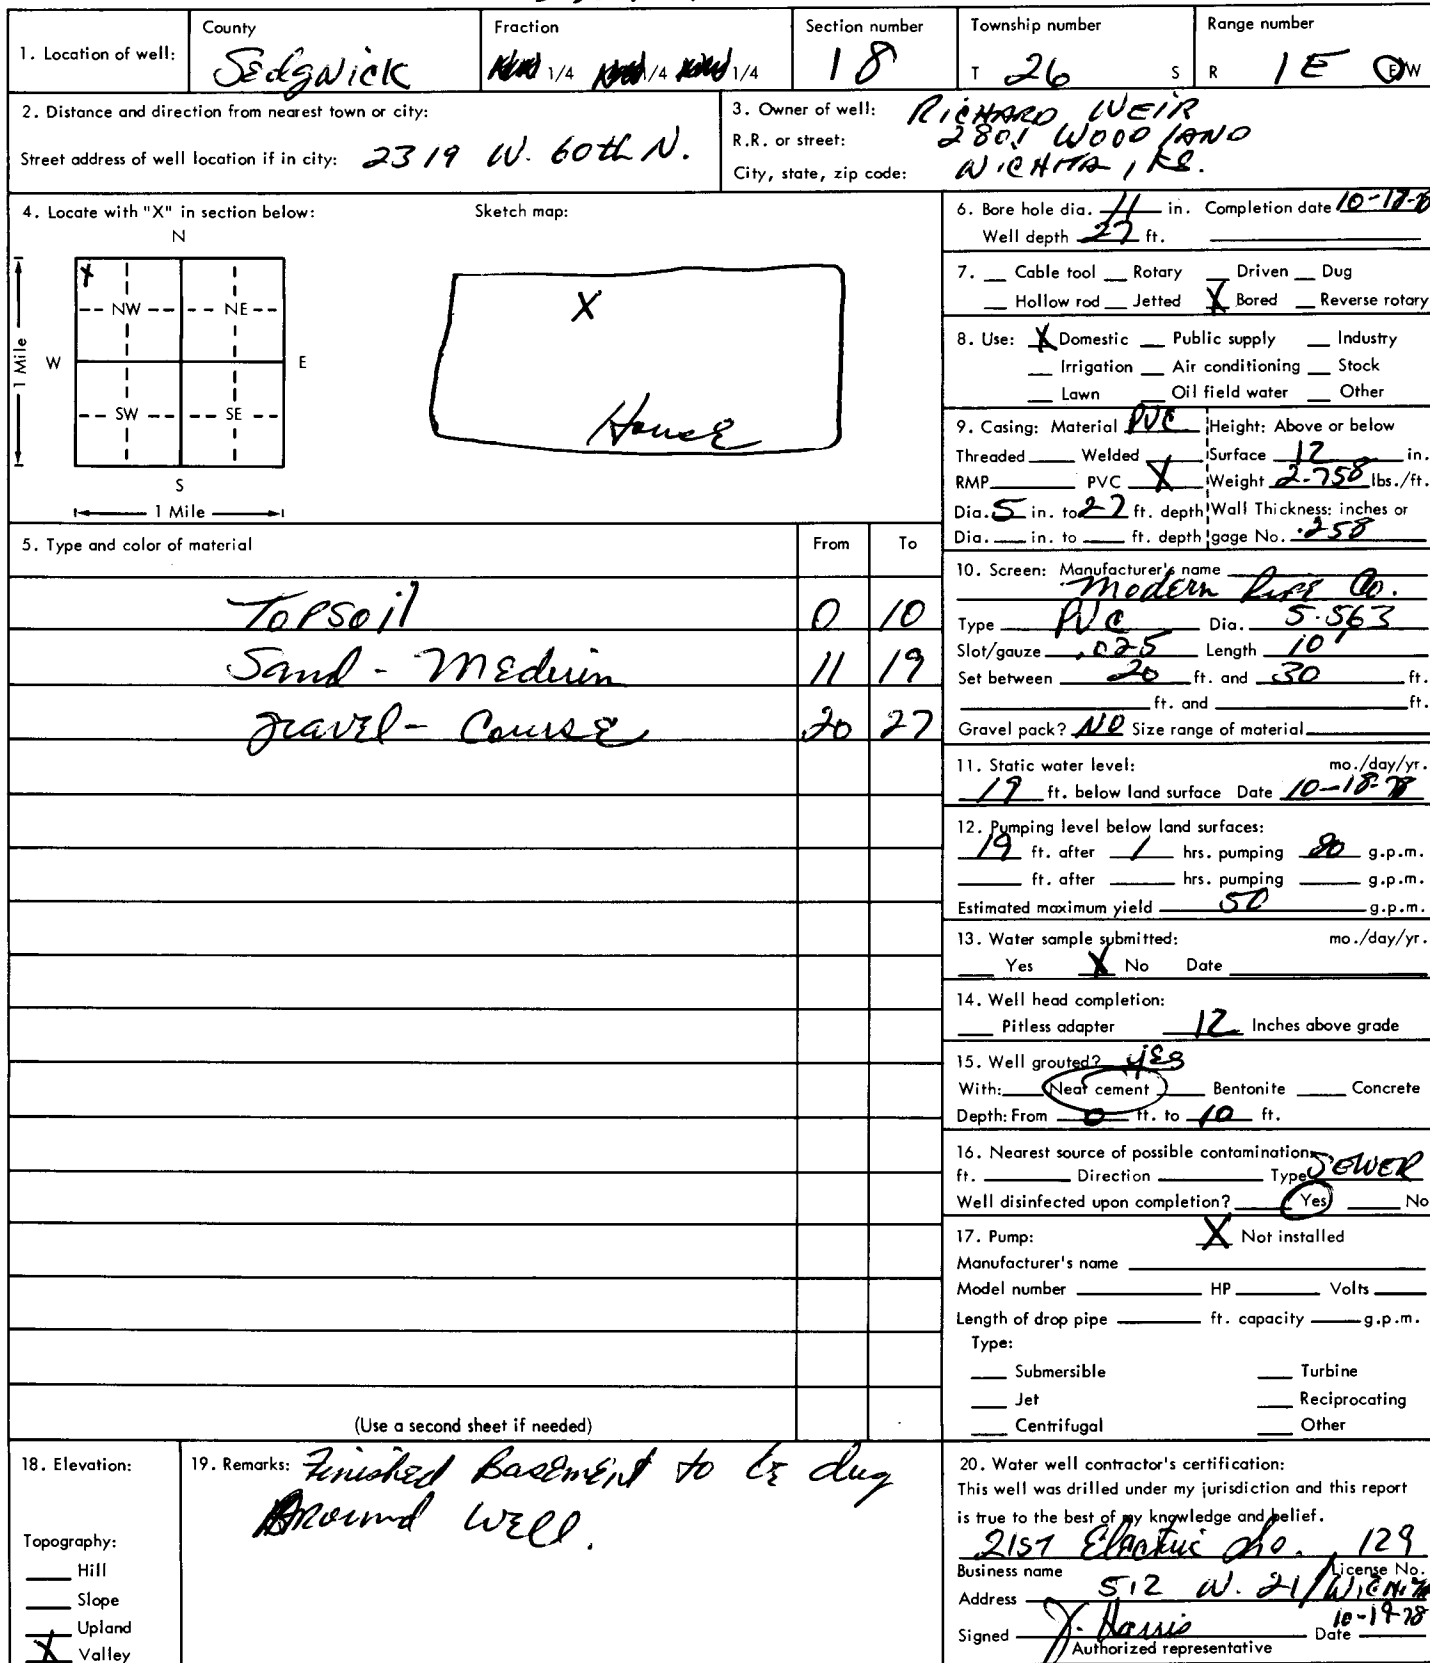 1. Location of well:
County
Sedgwick
Fraction
1/4 1/4 1/4
Section number
18
Township number
T 26 S
Range number
R 1E E/W
2. Distance and direction from nearest town or city:
Street address of well location if in city: 2319 W. 60th N.
3. Owner of well: RICHARD WEIR
R.R. or street: 2801 WOODLAND
City, state, zip code: WICHITA, KS.
4. Locate with "X" in section below:
Sketch map:
N
X
NW NE
W E
SW SE
S
1 Mile
1 Mile
X
House
5. Type and color of material From To
Topsoil 0 10
Sand - Medium 11 19
Gravel - Course 20 27
(Use a second sheet if needed)
6. Bore hole dia. 11 in. Completion date 10-18-78
Well depth 27 ft.
7. Cable tool Rotary Driven Dug
Hollow rod Jetted X Bored Reverse rotary
8. Use: X Domestic Public supply Industry
Irrigation Air conditioning Stock
Lawn Oil field water Other
9. Casing: Material PVC Height: Above or below
Threaded Welded Surface 12 in.
RMP PVC X Weight 2.758 lbs./ft.
Dia. 5 in. to 27 ft. depth Wall Thickness: inches or
Dia. in. to ft. depth gage No. .258
10. Screen: Manufacturer's name
Modern Pipe Co.
Type PVC Dia. 5.563
Slot/gauze .025 Length 10'
Set between 20 ft. and 30 ft.
ft. and ft.
Gravel pack? NO Size range of material
11. Static water level: mo./day/yr.
19 ft. below land surface Date 10-18-78
12. Pumping level below land surfaces:
19 ft. after 1 hrs. pumping 20 g.p.m.
ft. after hrs. pumping g.p.m.
Estimated maximum yield 50 g.p.m.
13. Water sample submitted: mo./day/yr.
Yes X No Date
14. Well head completion:
Pitless adapter 12 Inches above grade
15. Well grouted? yes
With: Neat cement Bentonite Concrete
Depth: From 0 ft. to 10 ft.
16. Nearest source of possible contamination:
ft. Direction Type SEWER
Well disinfected upon completion? Yes No
17. Pump: X Not installed
Manufacturer's name
Model number HP Volts
Length of drop pipe ft. capacity g.p.m.
Type:
Submersible Turbine
Jet Reciprocating
Centrifugal Other
18. Elevation:
Topography:
Hill
Slope
Upland
X Valley
19. Remarks: Finished Basement to be dug
Around well.
20. Water well contractor's certification:
This well was drilled under my jurisdiction and this report
is true to the best of my knowledge and belief.
21st Electric 129
Business name License No.
Address 512 W. 21 / Wichita
Signed J. Harris Date 10-19-78
Authorized representative